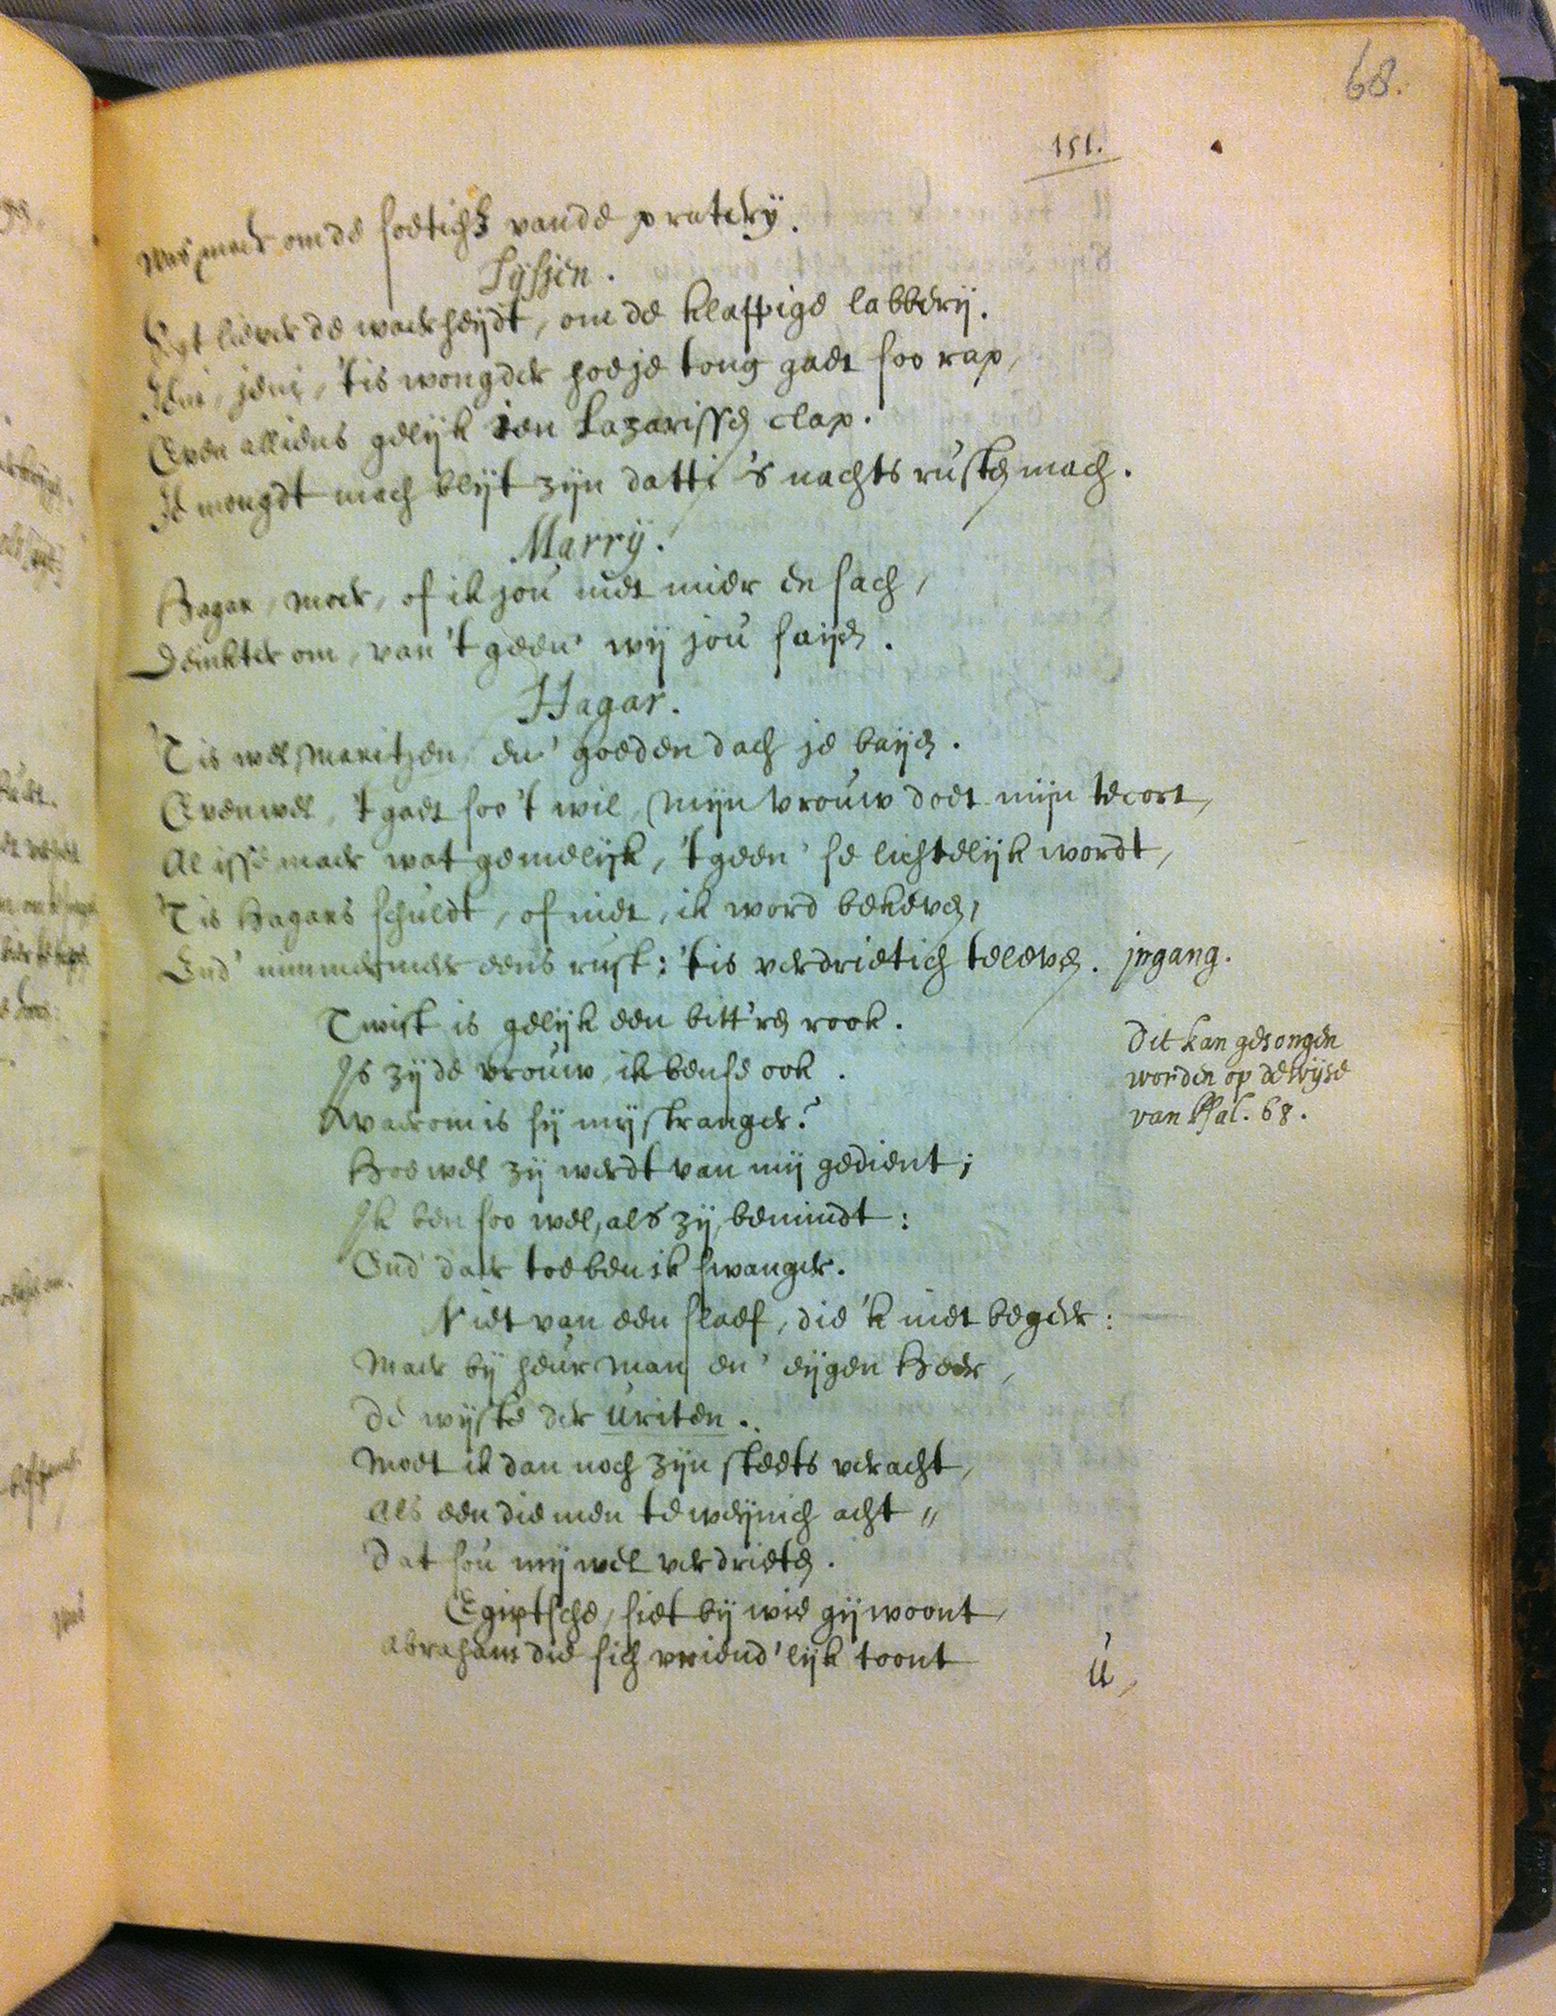 68.
151.
was maer om de soeticht vande pratery.
Sijssjen.
Segt liever de waerheijdt, om de klappige labberij.
Jeni, jeni, 'tis wongder hoe je tong gaet soo rap,
Even alliens gelijk ien Lazarissen clap.
Je mongdt mach blijt zijn datti 's nachts rusten mach.
Marrÿ.
Hagar, moer, of ik joú niet mier en sach,
Deinkter om, van 't geen' wij joú saijen.
Hagar.
'T is wel, Maritzen, en' goeden dach je baijen.
Evenwel, 't gaet soo 't wil, Mijn Vrouw doet mijn tecort,
Al isse maer wat gemelijk, 't geen' se lichtelijk wordt,
'T is Hagars schuldt, of niet, ik word bekeven,
End' nimmermeer eens rust: 'tis verdrietich televen. jngang.
Twist is gelijk een bitt'ren rook.
Is zij de vrouw, ik bense ook.
Waerom is sij mij stranger?
Hoe wel zij werdt van mij gedient;
Ik ben soo wel, als zij, bemindt:
End' daer toe ben ik swanger.
Dit kan gesongen
worden op de wijse
van Psal. 68.
Niet van een slaef, die 'k niet begeer:
Maer bij heur man en' eijgen Heer,
De wijste der Uriten.
Moet ik dan noch zijn steets veracht,
Als een die men te weijnich acht,,
Dat soú mij wel verdrieten.
Egiptsche, siet bij wie gij woont,
Abraham die sich vriend'lijk toont
ú,